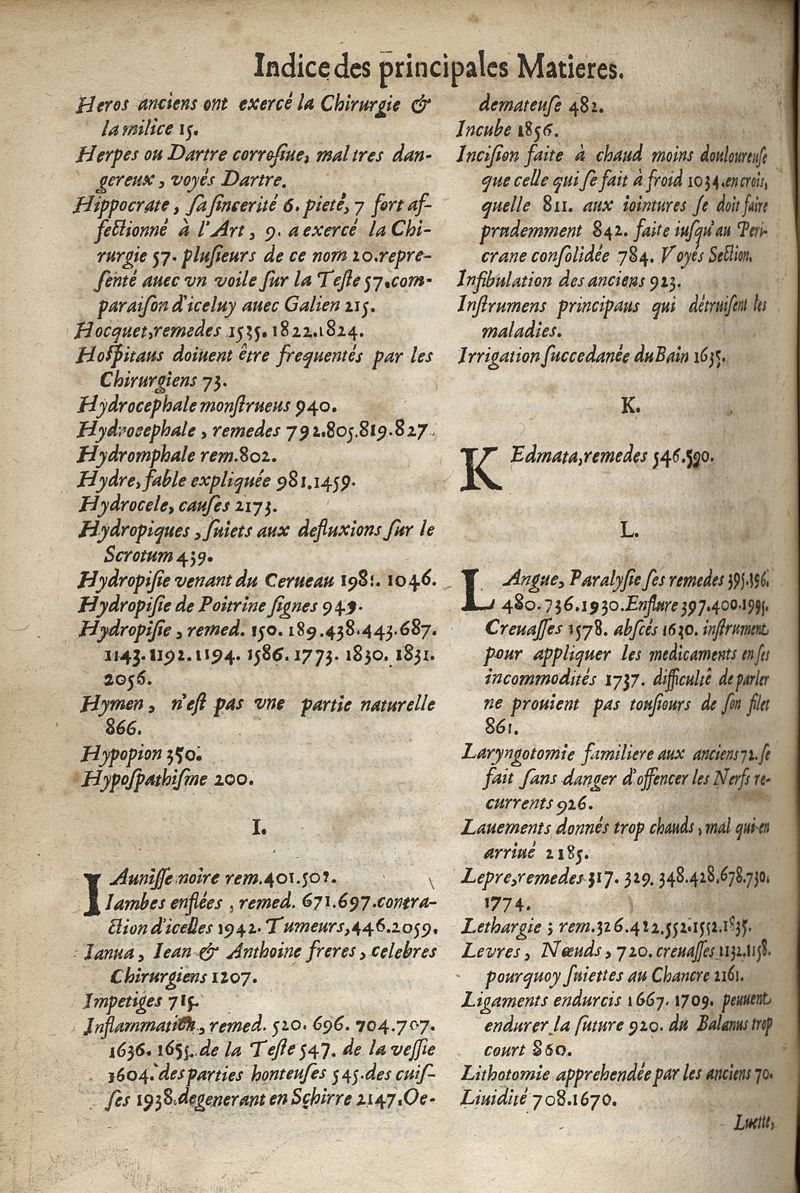 Indice des principales Matieres.
Heros anciens ont exercé la Chirurgie &
la milice 15.
Herpes ou Dartre corrosiue, mal tres dan-
gereux, voyés Dartre.
Hippocrate, sa sincerité 6. pieté, 7 fort af-
fectionné à l'Art, 9. a exercé la Chi-
rurgie 57. plusieurs de ce nom 20. repre-
senté auec vn voile sur la Teste 57. com-
paraison d'iceluy auec Galien 215.
Hocquet, remedes 1535. 1822. 1824.
Hospitaus doiuent être frequentés par les
Chirurgiens 73.
Hydrocephale monstrueus 940.
Hydrocephale, remedes 792. 805. 819. 827.
Hydromphale rem. 802.
Hydre, fable expliquée 981. 1459.
Hydrocele, causes 2173.
Hydropiques, suiets aux defluxions sur le
Scrotum 439.
Hydropisie venant du Cerueau 1046.
Hydropisie de Poitrine signes 949.
Hydropisie, remed. 150. 189. 438. 443. 687.
1143. 1192. 1194. 1586. 1773. 1830. 1831.
2056.
Hymen, n'est pas vne partie naturelle
866.
Hypopion 350.
Hypospathisme 200.
I.
IAunisse noire rem. 401.
Iambes enflées, remed. 671. 697. contra-
ction d'icelles 1942. Tumeurs, 446. 2059.
Ianua, Iean & Anthoine freres, celebres
Chirurgiens 1207.
Impetiges 715.
Inflammation, remed. 520. 696. 704. 707.
1636. 1655. de la Teste 547. de la vessie
1604. des parties honteuses 545. des cuis-
ses 1938. degenerant en Schirre 2147. Oe-
demateuse 482.
Incube 1856.
Incision faite à chaud moins douloureuse
que celle qui se fait à froid 1034. en crois,
quelle 811. aux iointures se doit faire
prudemment 842. faite iusqu'au Peri-
crane consolidée 784. Voyés Section.
Infibulation des anciens 923.
Instrumens principaus qui détruisent les
maladies.
Irrigation succedanée du Bain 1635.
K.
KEdmata, remedes 546. 590.
L.
LAngue, Paralysie ses remedes 395. 396.
480. 736. 1930. Enflure 397. 400. 1995.
Creuasses 1578. abscés 1630. instrument
pour appliquer les medicaments en ses
incommodités 1737. difficulté de parler
ne prouient pas tousiours de son filet
861.
Laryngotomie familiere aux anciens 72. se
fait sans danger d'offencer les Nerfs re-
currents 926.
Lauements donnés trop chauds, mal qui en
arriué 2185.
Lepre, remedes 317. 329. 348. 428. 678. 730.
1774.
Lethargie; rem. 326. 412. 552. 1552.
Levres, Nœuds, 720. creuasses 1132. 1158.
pourquoy suiettes au Chancre 2161.
Ligaments endurcis 1667. 1709. peuuent
endurer la suture 920. du Balanus trop
court 860.
Lithotomie apprehendée par les anciens 70.
Liuidité 708. 1670.
Luette,